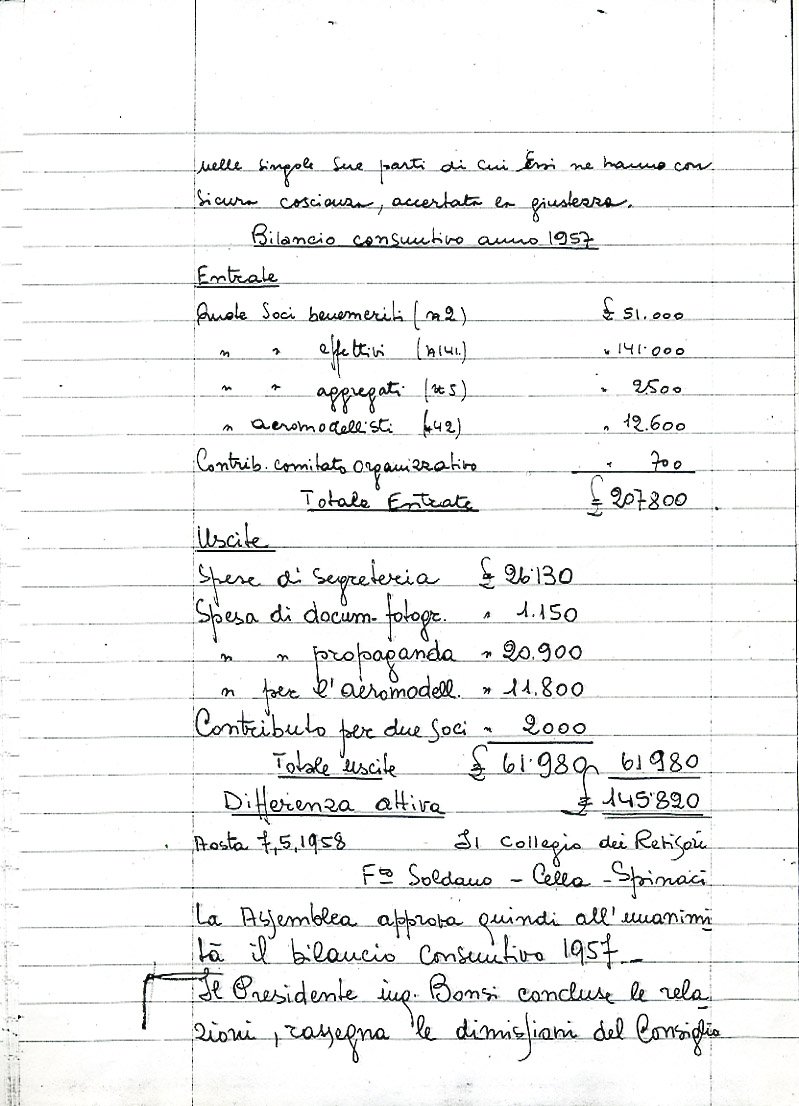 nelle singole sue parti di cui Essi ne hanno con
sicura coscienza, accertata la giustezza.
Bilancio consuntivo anno 1957
Entrate
Quote Soci benemeriti (n 2) £ 51.000
" " effettivi (n 141.) " 141.000
" " aggregati (n 5) " 2500
" aeromodellisti (n 42) " 12.600
Contrib. comitato organizzativo " 700
Totale Entrate £ 207800
Uscite
Spese di segreteria £ 26.130
Spesa di docum. fotogr. " 1.150
" " propaganda " 20.900
" per l'aeromodell. " 11.800
Contributo per due soci " 2000
Totale uscite £ 61.980 61980
Differenza attiva £ 145.820
Aosta 7,5,1958 Il Collegio dei Revisori
Fto Soldano - Cella - Spinaci
La Assemblea approva quindi all'unanimi
tà il bilancio consuntivo 1957.
Il Presidente ing. Bonsi concluse le rela
zioni, rassegna le dimissioni del Consiglio